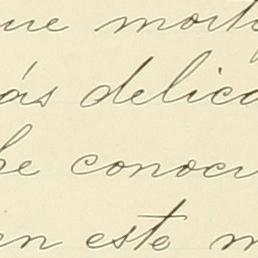 ue morti
ás delica
he conoci
en este m